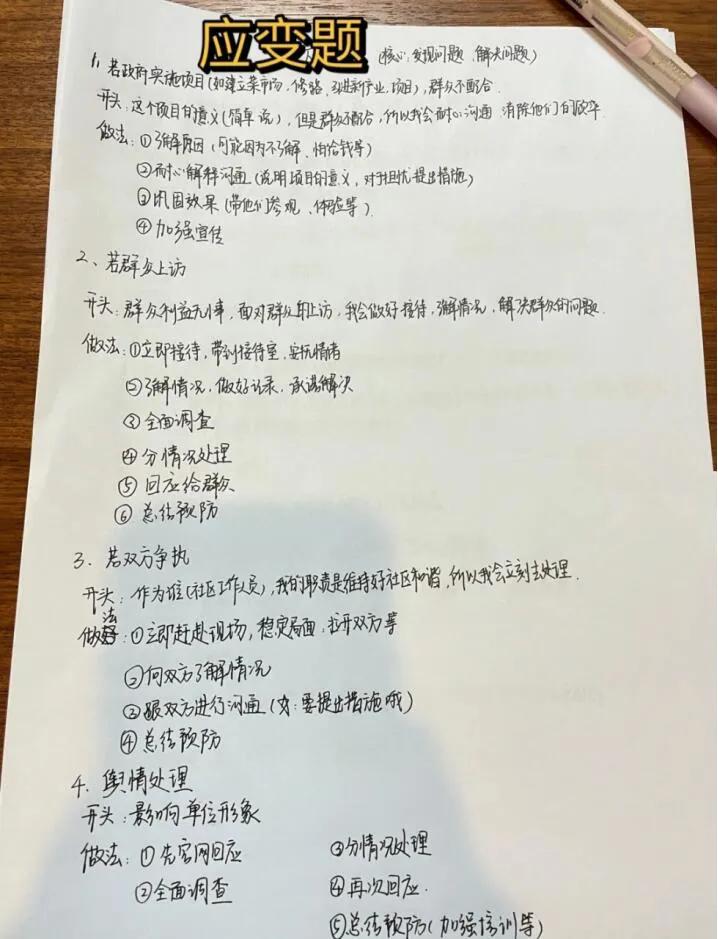 应变题
(核心:发现问题、解决问题)
1、若政府实施项目(如建立菜市场、修路、引进新产业项目),群众不配合.
开头:这个项目的意义(简单说),但是群众不配合,所以我会耐心沟通,消除他们的顾虑.
做法:①了解原因(可能因为不了解、怕给钱等)
②耐心解释沟通(说明项目的意义,对于担忧提出措施)
③巩固效果(带他们参观、体验等).
④加强宣传
2、若群众上访
开头:群众利益无小事,面对群众的上访,我会做好接待,了解情况,解决群众的问题.
做法:①立即接待,带到接待室,安抚情绪
②了解情况,做好记录,承诺解决
③全面调查
④分情况处理
⑤回应给群众
⑥总结预防
3.若双方争执
开头:作为谁(社区工作人员),我的职责是维持好社区和谐,所以我会立刻去处理.
做法:①立即赶赴现场,稳定局面,拉开双方等
②向双方了解情况
③跟双方进行沟通(:要提出措施哦)
④总结预防
4.舆情处理
开头:影响单位形象
做法:①先官网回应
②全面调查
③分情况处理
④再次回应.
⑤总结预防(加强培训等)